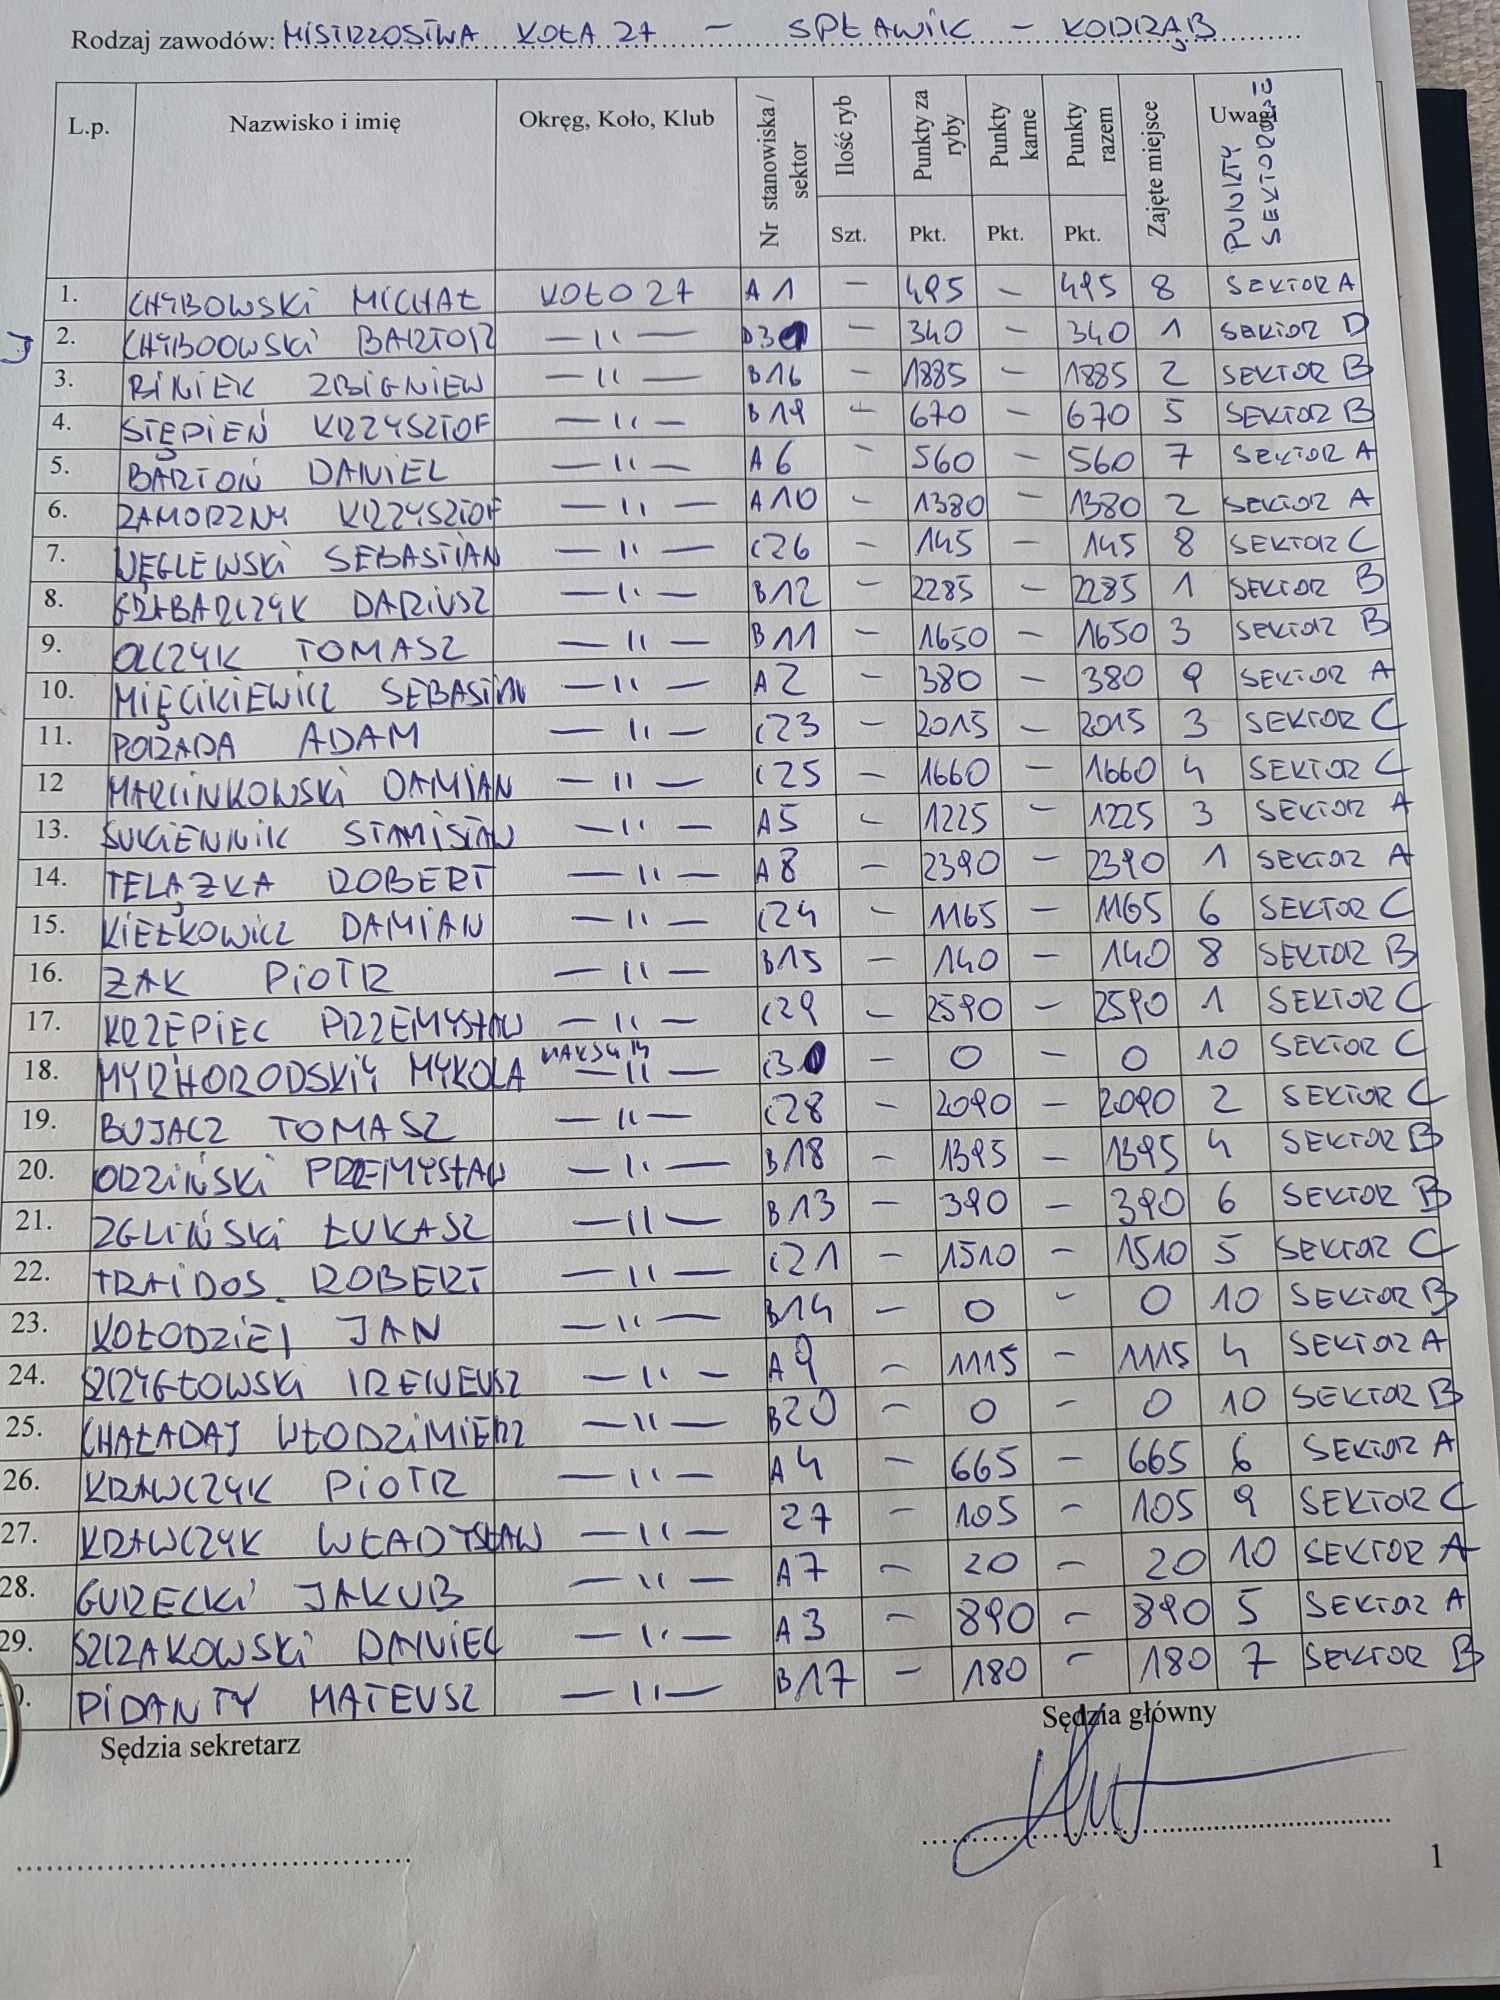 Rodzaj zawodów: MISTRZOSTWA KOŁA 27 – SPŁAWIK – KODRĄB
L.p. Nazwisko i imię Okręg, Koło, Klub Nr stanowiska / sektor Ilość ryb Punkty za ryby Punkty karne Punkty razem Zajęte miejsce Uwagi PUNKTY SEKTOROWE
Szt. Pkt. Pkt. Pkt.
1. CHYBOWSKI MICHAŁ KOŁO 27 A1 – 495 – 495 8 SEKTOR A
J 2. CHYBOOWSKI BARTOSZ – 11 – D31 – 340 – 340 1 SEKTOR D
3. BINIEK ZBIGNIEW – 11 – B16 – 1885 – 1885 2 SEKTOR B
4. STĘPIEŃ KRZYSZTOF – 11 – B19 – 670 – 670 5 SEKTOR B
5. BARTOŃ DANIEL – 11 – A6 – 560 – 560 7 SEKTOR A
6. ZAMORZNY KRZYSZTOF – 11 – A10 – 1380 – 1380 2 SEKTOR A
7. WĘGLEWSKI SEBASTIAN – 11 – C26 – 145 – 145 8 SEKTOR C
8. GRABARCZYK DARIUSZ – 11 – B12 – 2285 – 2285 1 SEKTOR B
9. OLCZYK TOMASZ – 11 – B11 – 1650 – 1650 3 SEKTOR B
10. MIĘCIKIEWICZ SEBASTIAN – 11 – A2 – 380 – 380 9 SEKTOR A
11. PORADA ADAM – 11 – C23 – 2015 – 2015 3 SEKTOR C
12 MARCINKOWSKI DAMIAN – 11 – C25 – 1660 – 1660 4 SEKTOR C
13. SUKIENNIK STANISŁAW – 11 – A5 – 1225 – 1225 3 SEKTOR A
14. TELĄŻKA ROBERT – 11 – A8 – 2390 – 2390 1 SEKTOR A
15. KIEŁKOWICZ DAMIAN – 11 – C24 – 1165 – 1165 6 SEKTOR C
16. ŻAK PIOTR – 11 – B15 – 140 – 140 8 SEKTOR B
17. KRZEPIEC PRZEMYSŁAW – 11 – C29 – 2590 – 2590 1 SEKTOR C
18. MYRHORODSKIY MYKOLA – 11 – C30 – 0 – 0 10 SEKTOR C
19. BUJACZ TOMASZ – 11 – C28 – 2090 – 2090 2 SEKTOR C
20. ODZIŃSKI PRZEMYSŁAW – 11 – B18 – 1395 – 1395 4 SEKTOR B
21. ZGLIŃSKI ŁUKASZ – 11 – B13 – 390 – 390 6 SEKTOR B
22. TRAIDOS ROBERT – 11 – C21 – 1510 – 1510 5 SEKTOR C
23. KOŁODZIEJ JAN – 11 – B14 – 0 – 0 10 SEKTOR B
24. SZCZYGŁOWSKI IRENEUSZ – 11 – A9 – 1115 – 1115 4 SEKTOR A
25. CHAŁADAJ WŁODZIMIERZ – 11 – B20 – 0 – 0 10 SEKTOR B
26. KRAWCZYK PIOTR – 11 – A4 – 665 – 665 6 SEKTOR A
27. KRAWCZYK WŁADYSŁAW – 11 – 27 – 105 – 105 9 SEKTOR C
28. GURECKI JAKUB – 11 – A7 – 20 – 20 10 SEKTOR A
29. SZCZAKOWSKI DANIEL – 11 – A3 – 890 – 890 5 SEKTOR A
0. PIDANTY MATEUSZ – 11 – B17 – 180 – 180 7 SEKTOR B
Sędzia sekretarz Sędzia główny
1